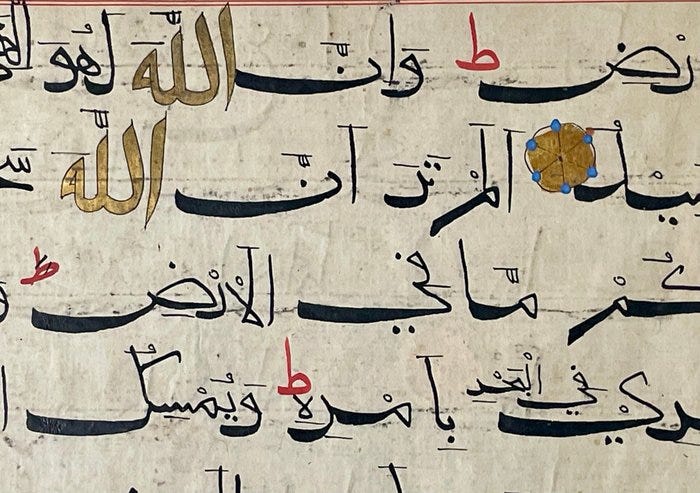 رْضِ ط وَاِنَّ اللّٰهَ لَهُوَ
ميدُ اَلَمْ تَرَ اَنَّ اللّٰهَ سَخَّ
كُمْ مَّا فِي الْاَرْضِ ط
رِي فِي الْبَحْرِ بِاَمْرِهٖ ط وَيُمْسِكُ ا